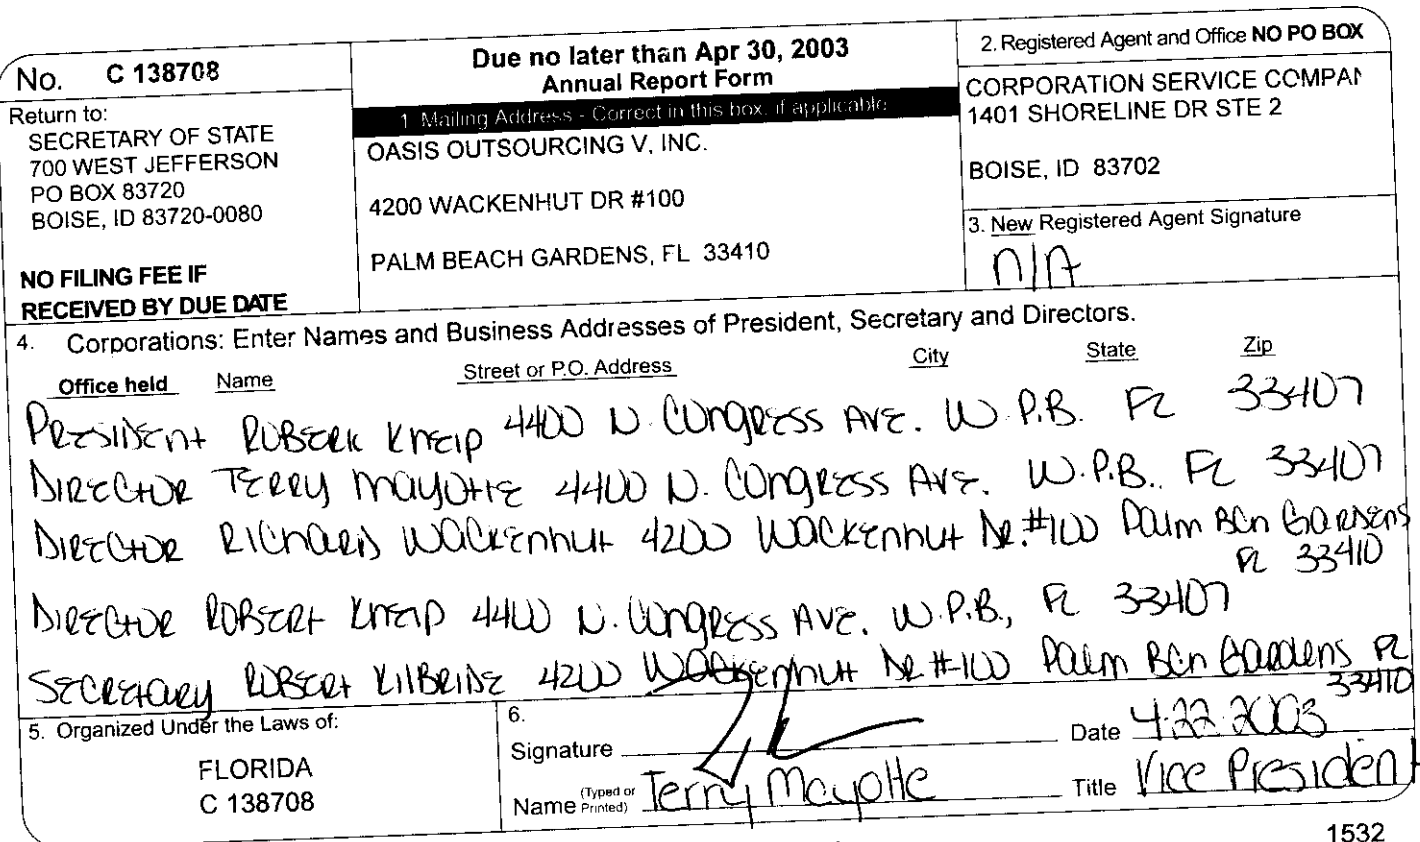 No. C 138708
Return to:
SECRETARY OF STATE
700 WEST JEFFERSON
PO BOX 83720
BOISE, ID 83720-0080
NO FILING FEE IF
RECEIVED BY DUE DATE
Due no later than Apr 30, 2003
Annual Report Form
1. Mailing Address - Correct in this box, if applicable
OASIS OUTSOURCING V, INC.
4200 WACKENHUT DR #100
PALM BEACH GARDENS, FL 33410
2. Registered Agent and Office NO PO BOX
CORPORATION SERVICE COMPAN
1401 SHORELINE DR STE 2
BOISE, ID 83702
3. New Registered Agent Signature
n/A
4. Corporations: Enter Names and Business Addresses of President, Secretary and Directors.
Office held Name Street or P.O. Address City State Zip
PRESIDENT ROBERK KNEIP 4400 N. CONGRESS AVE. W.P.B. FL 33407
DIRECTOR TERRY MAYOTTE 4400 N. CONGRESS AVE. W.P.B.. FL 33407
DIRECTOR RICHARD WACKENHUT 4200 WACKENHUT DR. #100 PALM BCH GARDENS
FL 33410
DIRECTOR ROBERT KNEIP 4400 N. CONGRESS AVE. W.P.B., FL 33407
SECRETARY ROBERT KILBRIDE 4200 WACKENHUT DR #100 PALM BCH GARDENS FL
33410
5. Organized Under the Laws of:
FLORIDA
C 138708
6.
Signature
Date 4.22.2003
Name (Typed or Printed) Terry Mayotte
Title Vice President
1532